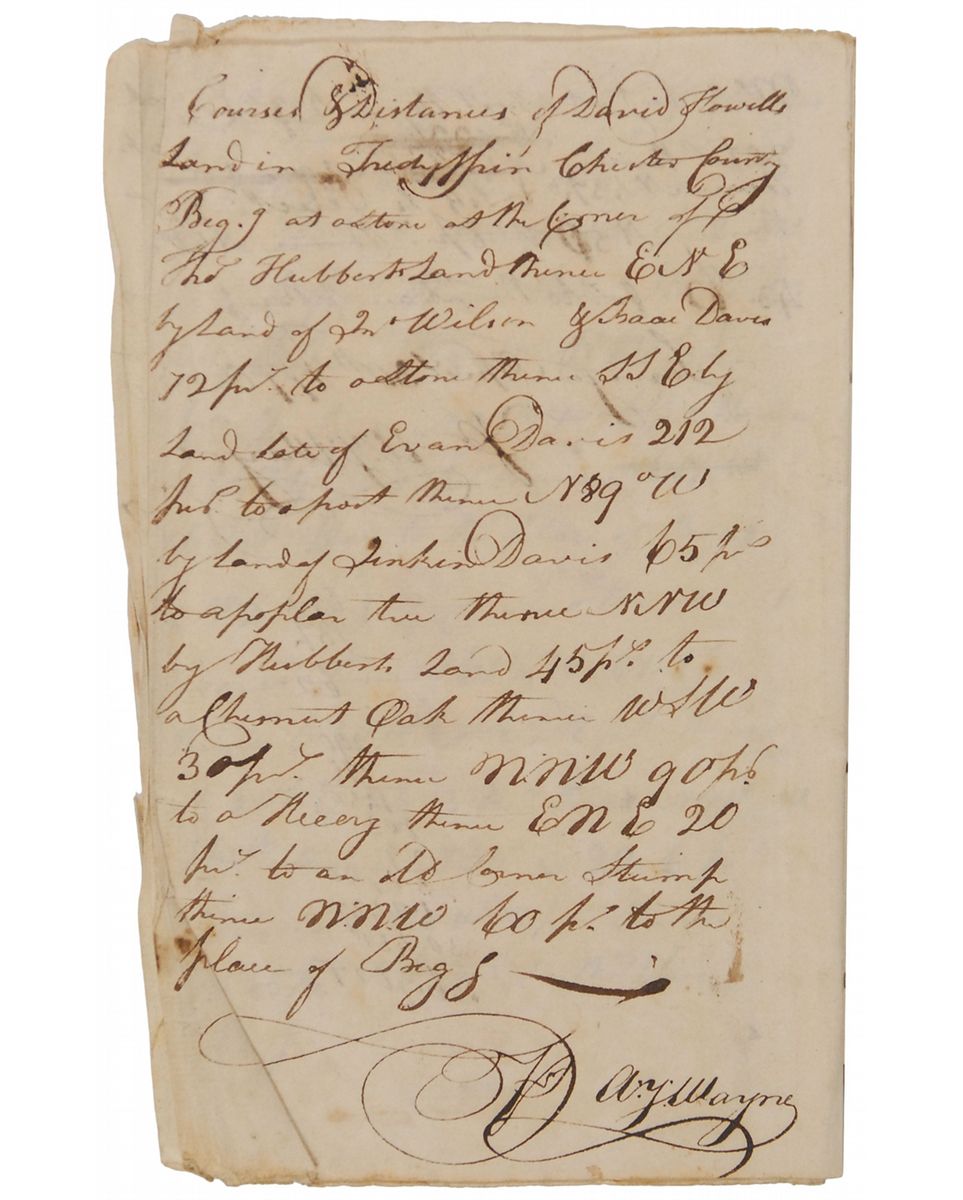 Courses & Distances of David Howells
Land in Tredyffrin Chester County
Beg.g at a stone at the Corner of
Thos Hubberts Land thence E N E
by Land of Jno Wilson & Isaac Davis
72 prs. to a Stone thence S S E by
Land Late of Evan Davis 212
prs. to a post thence N 89° W
by Land of Jinkin Davis 65 prs
to a poplar tree thence N.N W
by Hubberts Land 45 prs. to
a Chesnut Oak thence W S W
30 prs. thence N.N.W 90 prs.
to a Hicory thence E N E 20
prs. to an old Corner Stump
thence N.N.W 60 prs. to the
place of Beg g
Pr Ay. Wayne